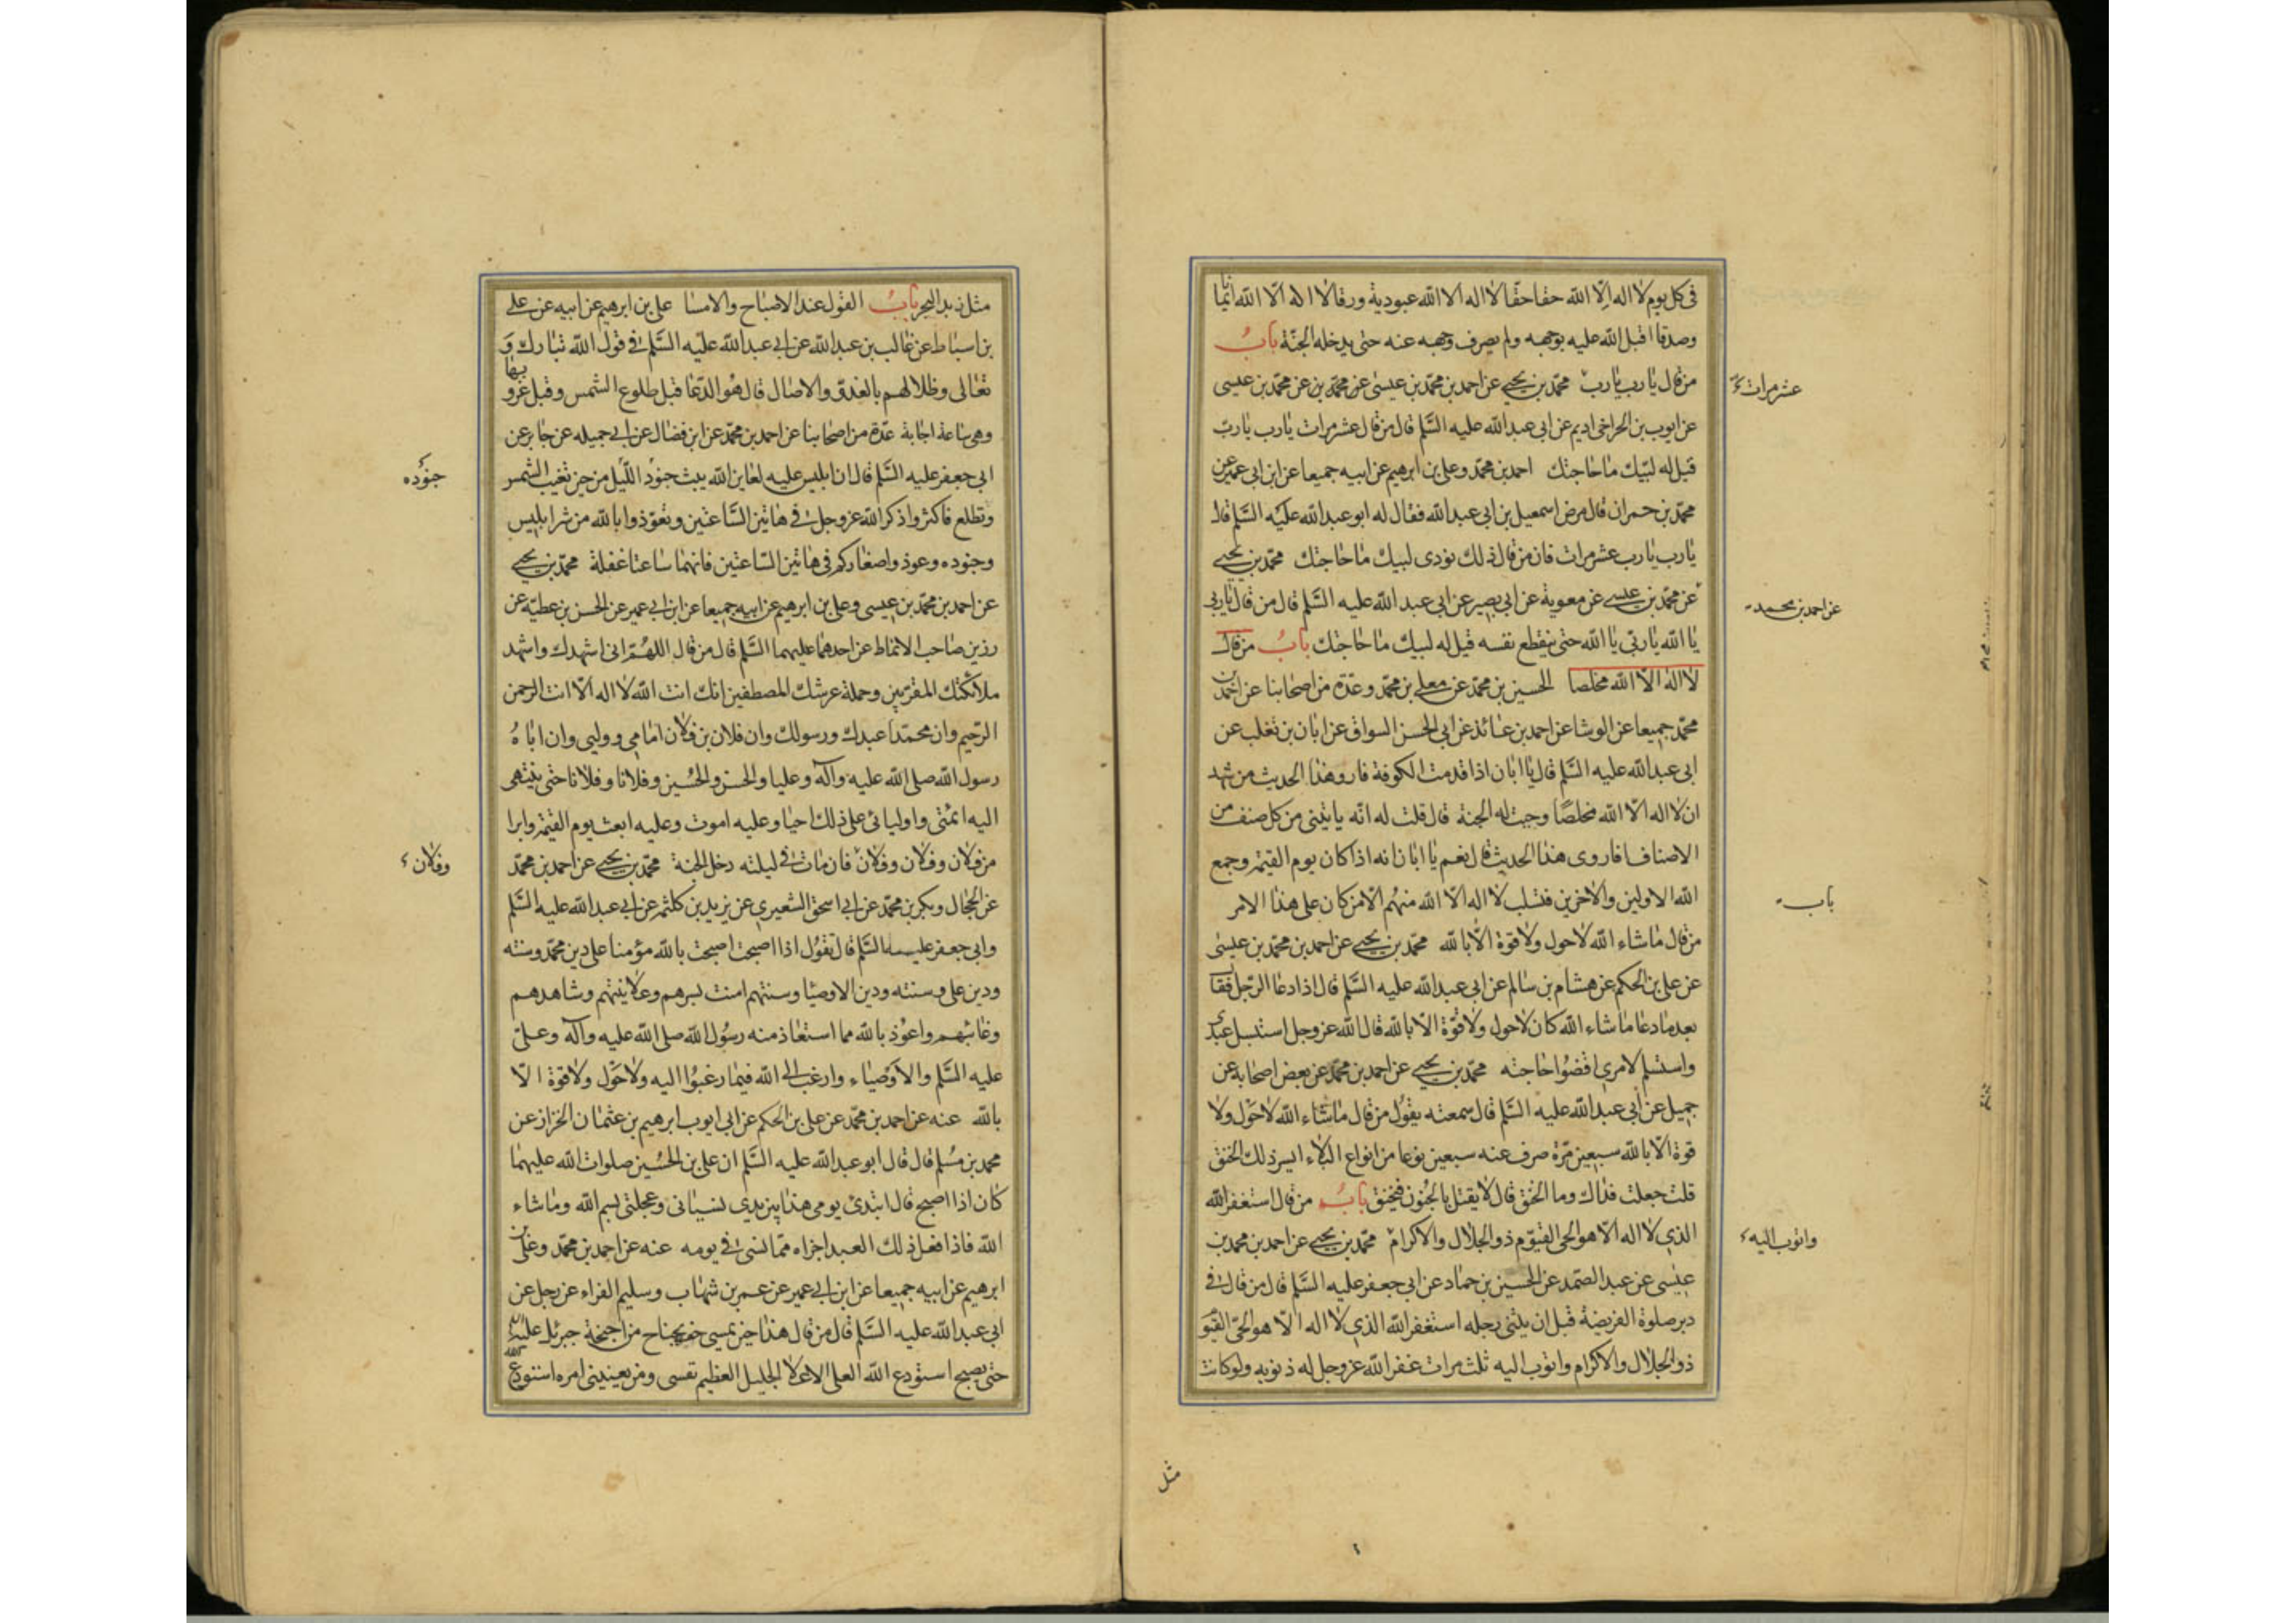 في كل يوم لا اله الا الله حقا حقا لا اله الا الله عبودية ورقا لا اله الا الله ايمانا
وصدقا اقبل الله عليه بوجهه ولم يصرف وجهه عنه حتى يدخله الجنة باب
من قال يا رب يا رب محمد بن يحيى عن احمد بن محمد بن عيسى عن محمد بن عن محمد بن عيسى
عشر مرات
عن ايوب بن الحر اخى اديم عن ابى عبد الله عليه السلم قال من قال عشر مرات يا رب يا رب
قيل له لبيك ما حاجتك احمد بن محمد وعلى بن ابرهيم عن ابيه جميعا عن ابن ابى عمير عن
محمد بن حمران قال مرض اسمعيل بن ابى عبد الله فقال له ابو عبد الله عليه السلم قال
يا رب يا رب عشر مرات فان من قال ذلك نودى لبيك ما حاجتك محمد بن يحيى
عن محمد بن عيسى عن معوية عن ابى بصير عن ابى عبد الله عليه السلم قال من قال يا ربى
عن احمد بن محمد
يا الله يا ربى يا الله حتى ينقطع نفسه قيل له لبيك ما حاجتك باب من قال
لا اله الا الله مخلصا الحسين بن محمد عن معلى بن محمد وعدة من اصحابنا عن احمد بن
محمد جميعا عن الوشا عن احمد بن عائذ عن ابى الحسن السواق عن ابان بن تغلب عن
ابى عبد الله عليه السلم قال يا ابان اذا قدمت الكوفة فارو هذا الحديث من شهد
ان لا اله الا الله مخلصا وجبت له الجنة قال قلت له انه ياتينى من كل صنف من
الاصناف افاروى هذا الحديث قال نعم يا ابان انه اذا كان يوم القيمة وجمع
الله الاولين والاخرين فتسلب لا اله الا الله منهم الا من كان على هذا الامر
باب
من قال ما شاء الله لا حول ولا قوة الا بالله محمد بن يحيى عن احمد بن محمد بن عيسى
عن على بن الحكم عن هشام بن سالم عن ابى عبد الله عليه السلم قال اذا دعا الرجل فقال
بعد ما دعا ما شاء الله كان لا حول ولا قوة الا بالله قال الله عز وجل استبسل عبدى
واستسلم لامرى اقضوا حاجته محمد بن يحيى عن احمد بن محمد عن بعض اصحابه عن
جميل عن ابى عبد الله عليه السلم قال سمعته يقول من قال ما شاء الله لا حول ولا
قوة الا بالله سبعين مرة صرف عنه سبعين نوعا من انواع البلاء ايسر ذلك الخنق
قلت جعلت فداك وما الخنق قال لا يقتل بالجنون فيخنق باب من قال استغفر الله
الذى لا اله الا هو الحى القيوم ذو الجلال والاكرام محمد بن يحيى عن احمد بن محمد بن
واتوب اليه
عيسى عن عبد الصمد عن الحسين بن حماد عن ابى جعفر عليه السلم قال من قال فى
دبر صلوة الفريضة قبل ان يثنى رجله استغفر الله الذى لا اله الا هو الحى القيوم
ذو الجلال والاكرام واتوب اليه ثلث مرات غفر الله عز وجل له ذنوبه ولو كانت
مثل
مثل زبد البحر باب القول عند الاصباح والامسا على بن ابرهيم عن ابيه عن على
بن اسباط عن غالب بن عبد الله عن ابى عبد الله عليه السلم فى قول الله تبارك و
تعالى وظلالهم بالغدو والاصال قال هو الدعا قبل طلوع الشمس وقبل غروبها
وهى ساعة اجابة عدة من اصحابنا عن احمد بن محمد عن ابن فضال عن ابى جميله عن جابر عن
ابى جعفر عليه السلم قال ان ابليس عليه لعاين الله يبث جنود الليل من حين تغيب الشمس
جنوده
وتطلع فاكثروا ذكر الله عز وجل فى هاتين الساعتين وتعوذوا بالله من شر ابليس
وجنوده وعوذوا صغاركم فى هاتين الساعتين فانهما ساعتا غفلة محمد بن يحيى
عن احمد بن محمد بن عيسى وعلى بن ابرهيم عن ابيه جميعا عن ابن ابى عمير عن الحسن بن عطية عن
رزين صاحب الانماط عن احدهما عليهما السلم قال من قال اللهم انى اشهدك واشهد
ملائكتك المقربين وحملة عرشك المصطفين انك انت الله لا اله الا انت الرحمن
الرحيم وان محمدا عبدك ورسولك وان فلان بن فلان امامى ووليى وان اباه
رسول الله صلى الله عليه وآله وعليا والحسن والحسين وفلانا وفلانا حتى ينتهى
اليه ائمتى واوليائى على ذلك احيا وعليه اموت وعليه ابعث يوم القيمة وابرا
من فلان وفلان وفلان فان مات فى ليلته دخل الجنة محمد بن يحيى عن احمد بن محمد
وفلان
عن الحجال وبكر بن محمد عن ابى اسحق الشعيرى عن يزيد بن كلثمة عن ابى عبد الله عليه السلم
وابى جعفر عليه السلم قال تقول اذا اصبحت اصبحت بالله مؤمنا على دين محمد وسنته
ودين على وسنته ودين الاوصيا وسنتهم امنت بسرهم وعلانيتهم وشاهدهم
وغائبهم واعوذ بالله مما استعاذ منه رسول الله صلى الله عليه وآله وعلى
عليه السلم والاوصياء وارغب الى الله فيما رغبوا اليه ولا حول ولا قوة الا
بالله عنه عن احمد بن محمد عن على بن الحكم عن ابى ايوب ابرهيم بن عثمان الخزاز عن
محمد بن مسلم قال قال ابو عبد الله عليه السلم ان على بن الحسين صلوات الله عليهما
كان اذا اصبح قال ابتدئ يومى هذا بين يدى نسيانى وعجلتى بسم الله وما شاء
الله فاذا فعل ذلك العبد اجزاه مما نسى فى يومه عنه عن احمد بن محمد وعلى بن
ابرهيم عن ابيه جميعا عن ابن ابى عمير عن عمر بن شهاب وسليم الفراء عن رجل عن
ابى عبد الله عليه السلم قال من قال هذا حين يمسى حف بجناح من اجنحة جبرئل عليه السلم
حتى يصبح استودع الله العلى الاعلا الجليل العظيم نفسى ومن يعنينى امره استودع الله